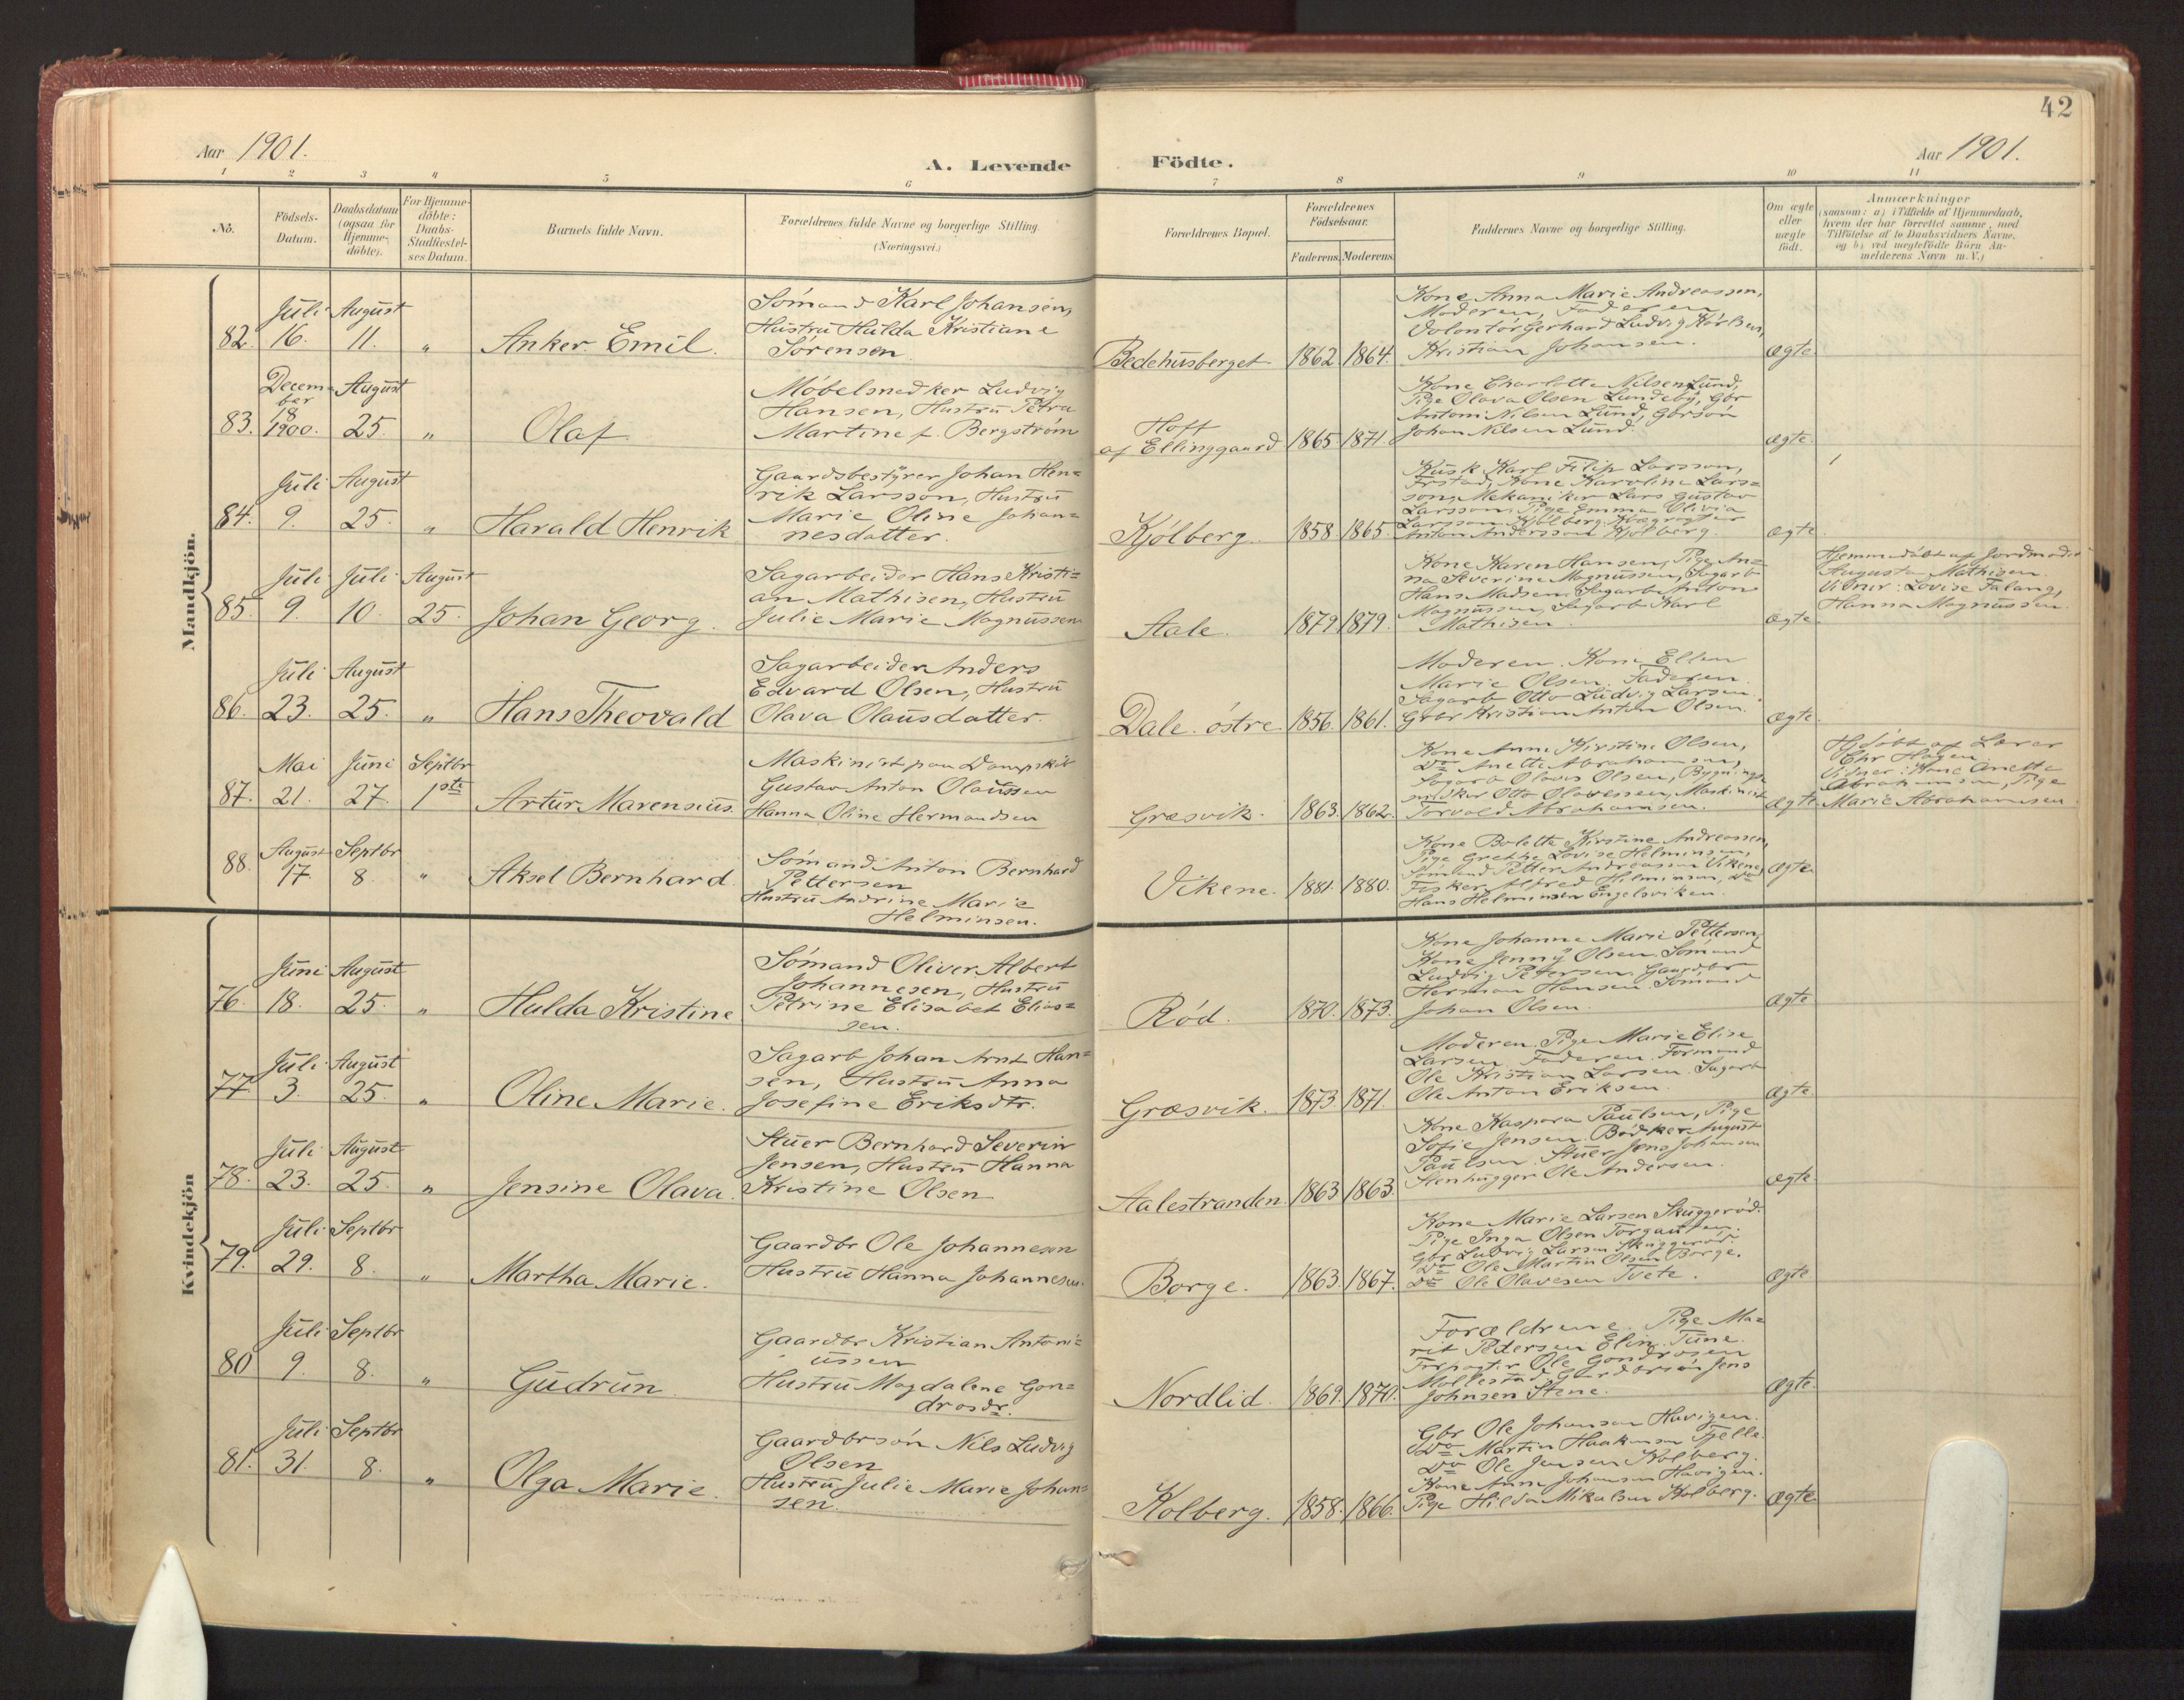 42
Aar 1901.
A. Levende Födte.
Aar 1901.
1 2 3 4 5 6 7 8 9 10 11
No.
Födsels-
Datum.
Daabsdatum
(ogsaa for
Hjemme-
döbte).
For Hjemme-
döbte:
Daabs-
Stadfæstel-
ses Datum.
Barnets fulde Navn.
Forældrenes fulde Navne og borgerlige Stilling.
(Næringsvei.)
Forældrenes Bopæl.
Forældrenes
Födselsaar.
Faderens. Moderens.
Faddernes Navne og borgerlige Stilling.
Om ægte
eller
uægte
født.
Anmærkninger
(saasom: a) i Tilfælde af Hjemmedaab,
hvem der har forrettet samme, med
Tilföielse af to Daabsvidners Navne,
og b) ved uægtefödte Börn An-
melderens Navn m. V.)
Mandkjön.
82. Juli 16. August 11. " Anker Emil.
Sómand Karl Johansen,
Hustru Hulda Kristiane
Sørensen.
Bedehusberget 1862 1864.
Kone Anna Marie Andreassen,
Moderen, Faderen
Volontór Gerhard Ludvig Kárlsen,
Kristian Johansen.
ægte.
83. Decem-
ber
18
1900. August 25. " Olaf
Móbelsnedker Ludvig
Hansen, Hustru Petra
Martine f. Bergstróm
Hoff
af Ellinggaard 1865 1871.
Kone Charlotte Nilsen Lund,
Pige Olava Olsen Lundeby, Gbr
Antoni Nilsen Lund, Gbrsón
Johan Nilsen Lund.
ægte.
84. Juli 9. August 25. " Harald Henrik
Gaardsbestyrer Johan Hen=
rik Larsson, Hustru
Marie Oline Johan=
nesdatter.
Kjólberg 1858 1865.
Kusk Karl Filip Larsson,
Kone Karoline Lars=
son, Mekaniker Lars Gustav
Larsson, Pige Emma Olivia
Larsson Kjólberg.
Anton Andersson Kjólberg.
ægte.
85. Juli 9. Juli 10. August 25. Johan Georg.
Sagarbeider Hans Kristi=
an Mathisen, Hustru
Julie Marie Magnussen
Aale. 1879 1879.
Kone Karen Hansen, Pige An=
na Severine Magnussen, Sagarb
Hans Madsen, Sagarb Anton
Magnussen, Sagarb Karl
Mathisen.
ægte.
Hjemmedóbt af Jordmoder
Augusta Mathisen.
Vidner: Lovise Falang,
Hanna Magnussen.
86. Juli 23. August 25. " Hans Theovald
Sagarbeider Anders
Edvard Olsen, Hustru
Olava Olausdatter.
Dale óstre 1856. 1861.
Moderen. Kone Ellen
Marie Olsen. Faderen.
Sagarb Otto Ludvig Larsen.
Gbr Kristian Anton Olsen.
ægte.
87. Mai 21. Juni 27. Septbr 1ste Artur Marensius.
Maskinist paa Dampskib
Gustav Anton Olaussen
Hanna Oline Hermandsen
Græsvik. 1863. 1862.
Kone Anne Kirstine Olsen,
Do Anette Abrahamsen,
Sagarb Olaves Olsen, Bygnings=
snedker Otto Olavessen, Maskinist
Torvald Abrahamsen.
ægte.
Hjdóbt af Lærer
Chr Hagen
Vidner: Kone Anette
Abrahamsen, Pige
Marie Abrahamsen.
88. August 17. Septbr 8. " Aksel Bernhard.
Sómand Anton Bernhard
Pettersen
Hustru Andrine Marie
Helminsen.
Vikene. 1881. 1880.
Kone Bolette Kirstine Andreassen,
Pige Grethe Lovise Helminsen,
Sómand Petter Andreassen Vikene,
Fisker Alfred Helminsen, Do
Hans Helminsen Engelsviken.
ægte.
Kvindekjön
76. Juni 18. August 25. " Hulda Kristine
Sómand Oliver Albert
Johannesen, Hustru
Petrine Elisabet Elias=
sen.
Ród. 1870. 1873.
Kone Johanne Marie Pettersen,
Kone Jenny Olsen. Sómand
Ludvig Petersen. Gaardbr
Herman Hansen. Sómand
Johan Olsen.
ægte.
77. Juli 3. August 25. " Oline Marie.
Sagarb Johan Arnt Han=
sen, Hustru Anna
Josefine Eriksdtr.
Græsvik. 1873 1871.
Moderen. Pige Marie Elise
Larsen. Faderen. Formand
Ole Kristian Larsen. Sagarb
Ole Anton Eriksen.
ægte.
78. Juli 23. August 25. " Jensine Olava.
Stuer Bernhard Severin
Jensen, Hustru Hanna
Kristine Olsen
Aalestranden. 1863 1863.
Kone Kaspara Paulsen, Pige
Sofie Jensen. Bódker August
Paulsen. Stuer Jens Johansen
Stenhugger Ole Andersen.
ægte.
79. Juli 29. Septbr 8. " Martha Marie.
Gaardbr Ole Johannesen
Hustru Hanna Johannesen.
Borge. 1863. 1867.
Kone Marie Larsen Skuggeród.
Pige Inga Olsen Torgauten.
Gbr Ludvig Larsen Skuggeród.
Do Ole Martin Olsen Borge.
Do Ole Olavesen Tvete.
ægte.
80 Juli 9. Septbr 8. " Gudrun.
Gaardbr Kristian Antoni=
ussen
Hustru Magdalene Gon=
drosdr.
Nordlid. 1869. 1870.
Forældrene. Pige Ma=
rit Pedersen Elin. Tune.
Ole Gondrosen
Mollestad. Gaardbrsón Jens
Johnsen Stene.
ægte.
81. Juli 31. Septbr 8. " Olga Marie.
Gaardbrsón Nils Ludvig
Olsen
Hustru Julie Marie Johan=
sen.
Kolberg. 1858. 1866.
Gbr Ole Johansen Havigen.
Do Martin Haakensen Fjelle.
Do Ole Jensen Kolberg.
Kone Anne Johansen Havigen.
Pige Hilda Mikalsen Kolberg.
ægte.